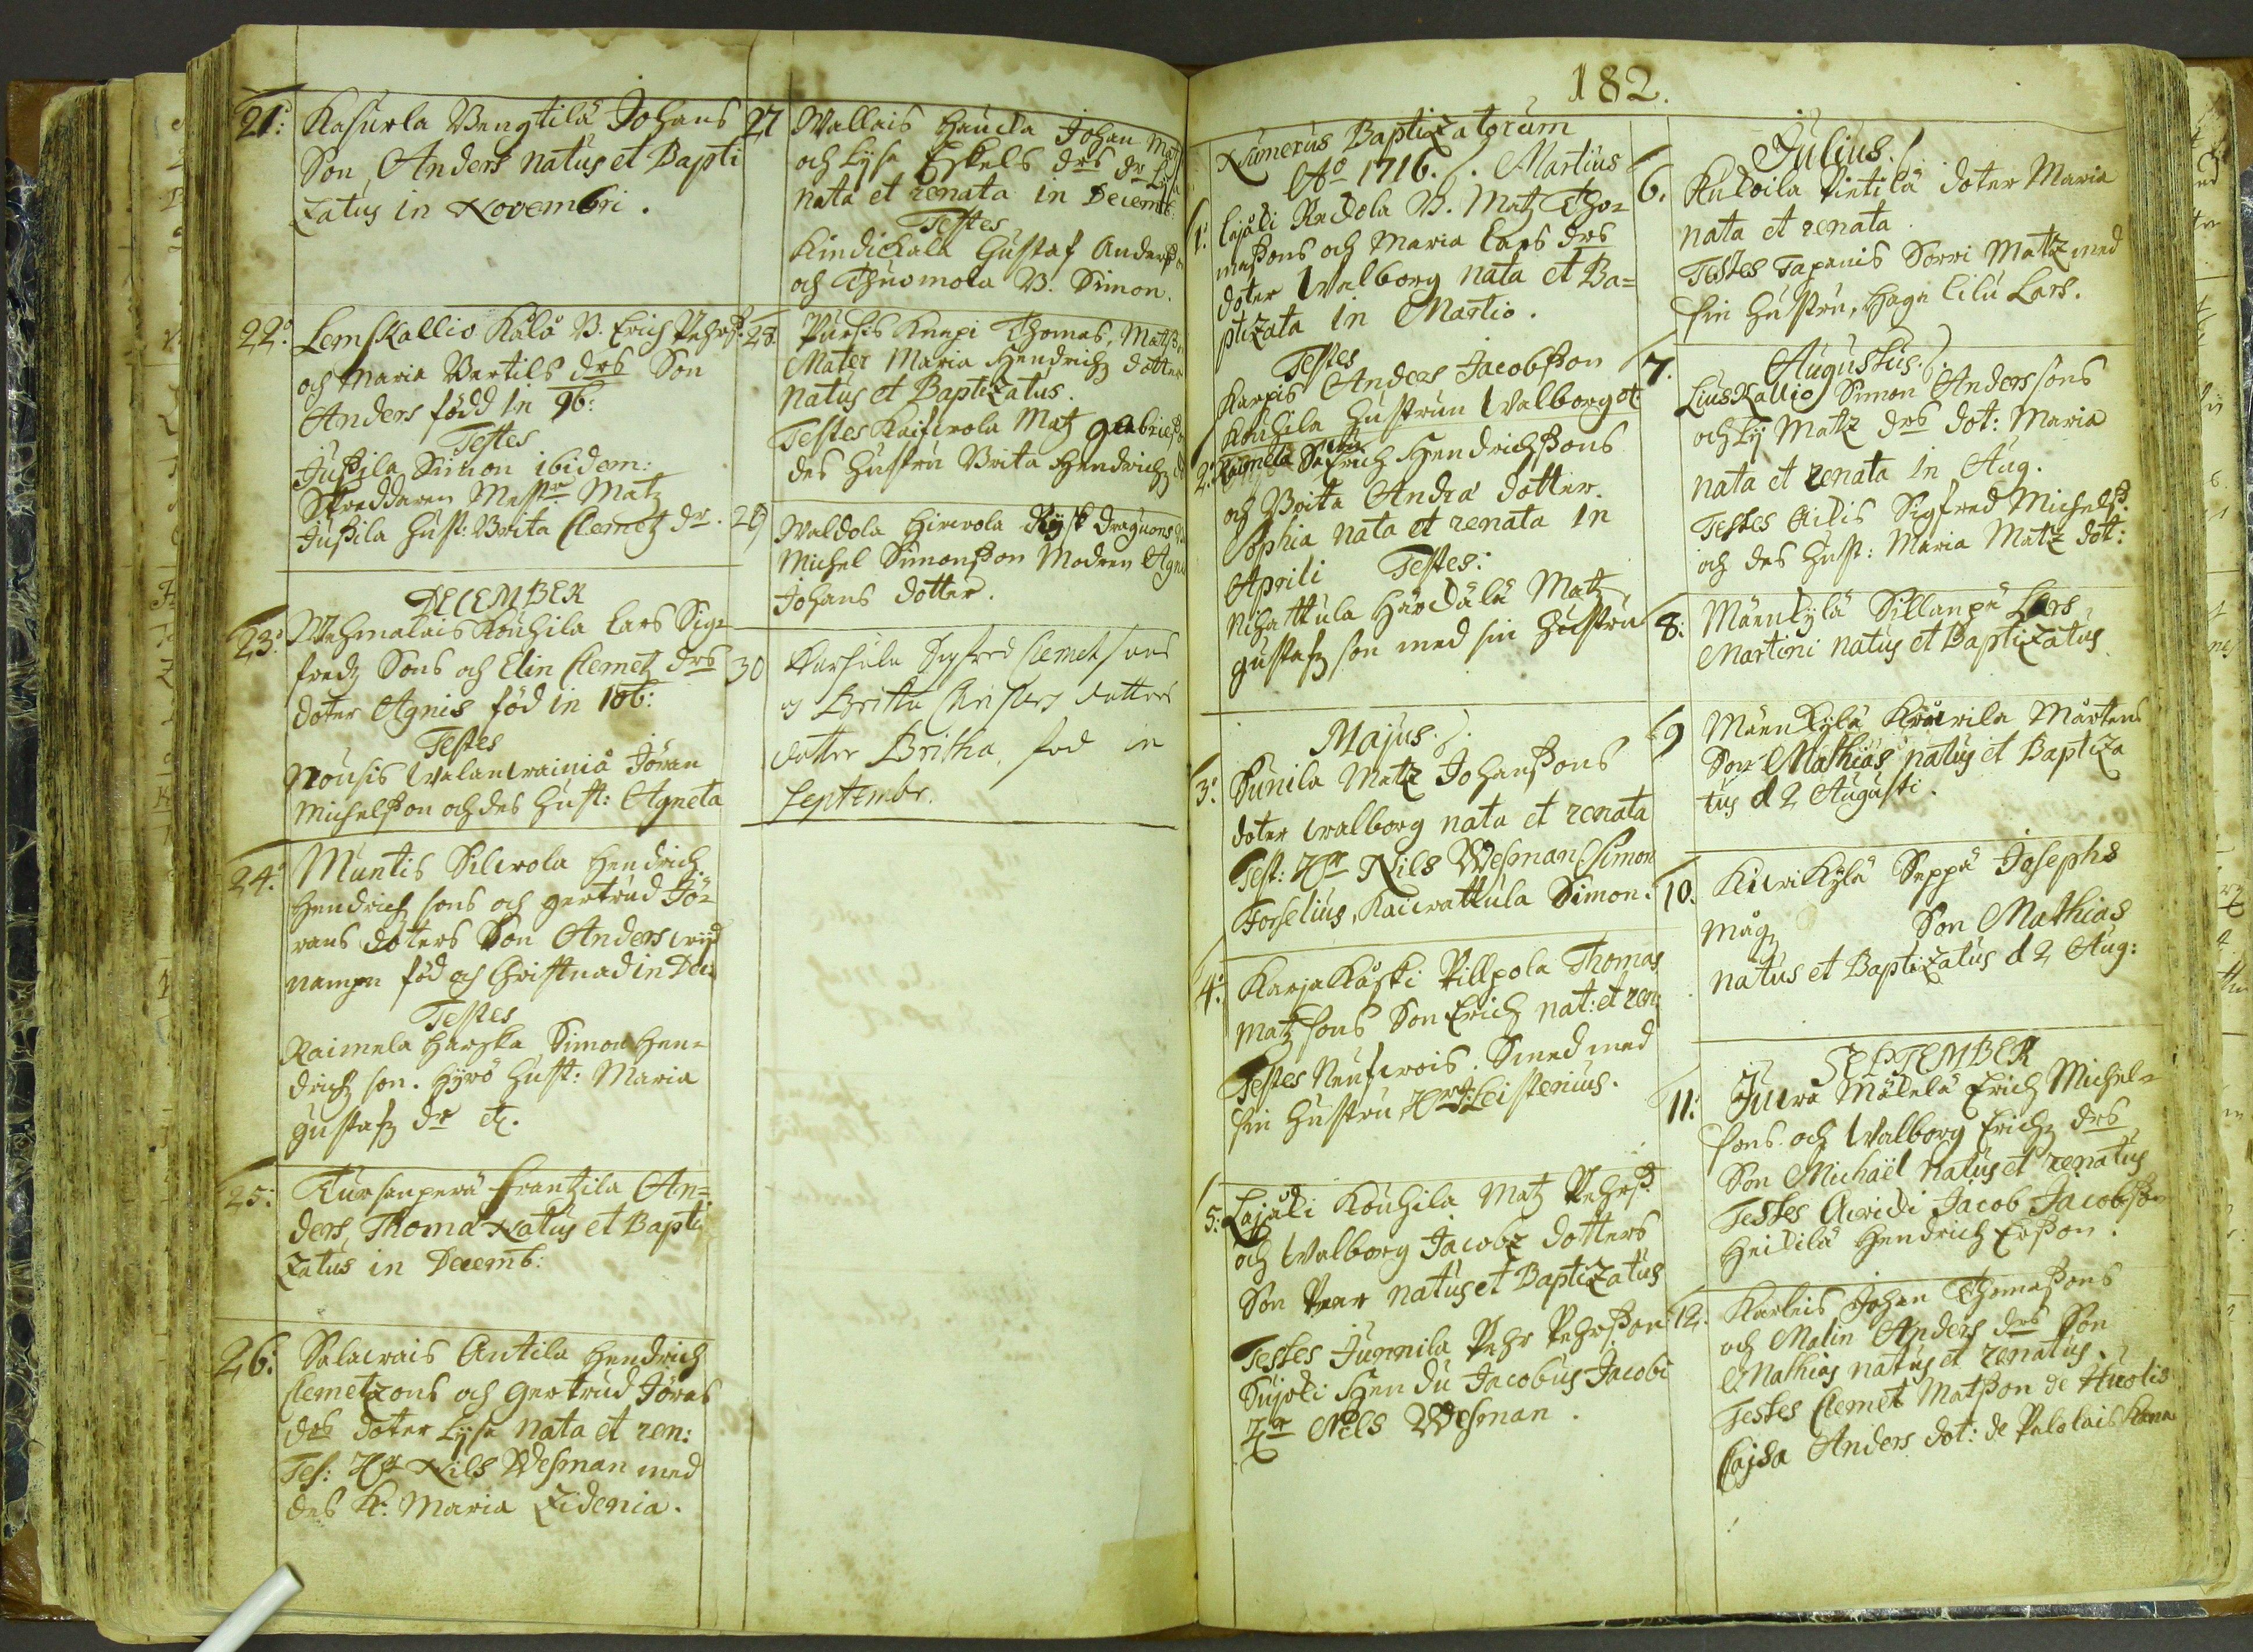 21: Kasurla Bengtilä Johans
Son, Anders natus et Bapti
zatus in Novembri.
22: Lemskallio Kålå B. Erich Pehrss:
och Maria Bertils drs Son
Anders född in 9b:
Testes
Jussila Simon ibidem:
Skreddaren Mestr Matz
Jussila Hust: Brita Clemetz dr.
DECEMBER
23: Wehmalais Kouhila Lars Sig=
fredz Sons och Elin Clemetz drs
doter Agnis föd in 10b:
Testes
Nousis Walanrainiå Jöran
Michelsson och des Hust: Agneta
24: Muntis Silwola Hendrich
Hendrichz sons och gertrud Jö=
rans doters Son Anders wijd
nampn föd och Christnad in Dec:
Testes
Raimela Harska Simon Hen=
drichz son. Hyrö Hust: Maria
gustafz dr etc.
25: Tursanperä Frantzila An=
ders, Thoma Natus et Bapti
zatus in Decemb:
26: Salawais Antila Hendrich
Clemetzons och Gertrud Jörans
drs doter Lysa nata et ren:
Tes: Hr Nils Wesman med
des K: Maria Zidenia.
27 Wallais Haucka Johan Matz
och Lysa Eskels drs dr Lysa
nata et renata in Decemb:
Testes
Kindickala Gustaf Anderss
och Thuomola B. Simon.
28. Pursis Knapi Thomas, Matss
Mater Maria Hendrichz dotter
natus et Baptizatus.
Testes Kaiswola Matz gabrielss
des Hustru Brita Hendrichz d
29 Waldola Hirwola Rysk Dragouns
Michel Simonsson Modren Agne
Johans dotter.
30 Karsula Sigfred Clemetsons
och Britta Christers dotter
dotter Britha, föd in
Septembr.
182.
Numerus Baptizatorum
Ao 1716. Martius
1: Lajåki Rekola B. Matz Tho=
massons och Maria Lars drs
doter Walborg nata et Ba=
ptizata in Martio.
Testes
Karpis Anders Jacobsson
Kouhila Hustrun Walborg etc
2: Raimela Erich Hendrichssons
och Brita Andra dotter.
Sophia nata et renata in
Aprili Testes:
Nihattula Härckälä Matz
gustafz son med sin Hustru
Majus.
3: Sunila Matz Johanssons
doter walborg nata et renata
Test: Hr Nils Wesman Simon
Forselius, Kaiwattula Simon.
4: Karjakåski Pillpola Thomas
Matz sons Son Erich nat: et ren
Testes Neufwois. Smed med
sin Hustru Hr Leistenius.
5: Lajåki Kouhila Matz Pehrss.
och Walborg Jacobz dotters
Son Pear natus et Baptizatus
Testes Junnila Pehr Pehrsson
Sujoki Hendu Jacobus Jacobi
Hr Nils Wesman.
Julius.
6. Kukoila Pietilä doter Maria
nata et renata
Testes Tapanis Sorri Matz med
sin Hustru, Haga Lilu Lars.
Augustus.
7. Liuskallio Simon Anderssons
och Ly Matz drs dot: Maria
nata et renata in Aug.
Testes Ailis Sigfred Michelss:
och des Hust: Maria Matz dot:
8: Männkylä Sillanpä Lars
Martini natus et Baptizatus
9 Männkylä Krouwila Mårtens
Son Mathias natus et Baptiza
tus d 2 Augusti.
10. Kiwikylä Seppä Josephs
Mågz Son Mathias
natus et Baptizatus d 2 Aug:
SEPTEMBER
11: Juwa Mäkelä Erich Michel=
sons och Walborg Erichz drs
Son Michaël natus et renatus
Testes Awicki Jacob Jacobsson
Heikilä Hendrich Ersson.
12. Karleis Johan Thomassons
och Malin Anders drs Son
Mathias natus et renatus.
Testes Clemet Matsson de Kuolis
Cajsa Anders dot: de Palolais